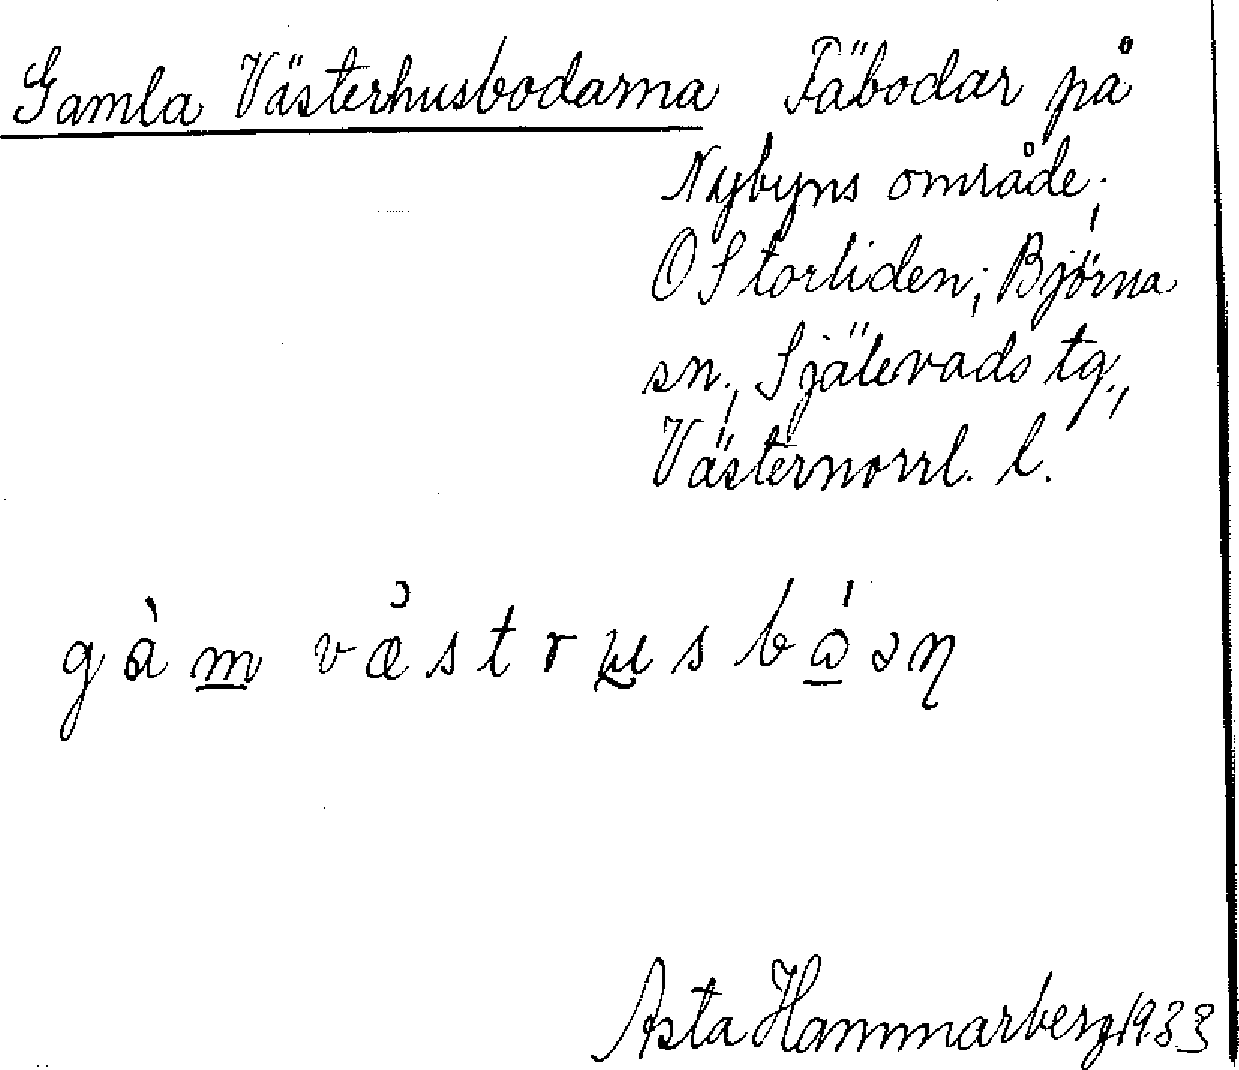 Gamla Västerhusbodarna Fäbodar på
Nybyns område;
O Storliden; Björna
sn., Själevads tg.,
Västernorrl. l.
gàm væstrusbɷ́ən
Asta Hammarberg 1933